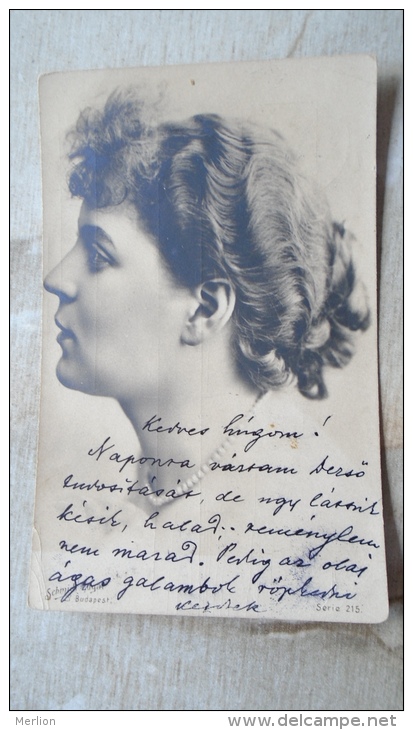 Kedves húgom!
Naponra vártam Dezső
tudosítását, de ugy látszik
késik, halad; reménylem
nem marad. Pedig az olaj
ágas galambok röpkedni
kezdtek
Budapest.
Serie 215.
Merlion
www.delcampe.net